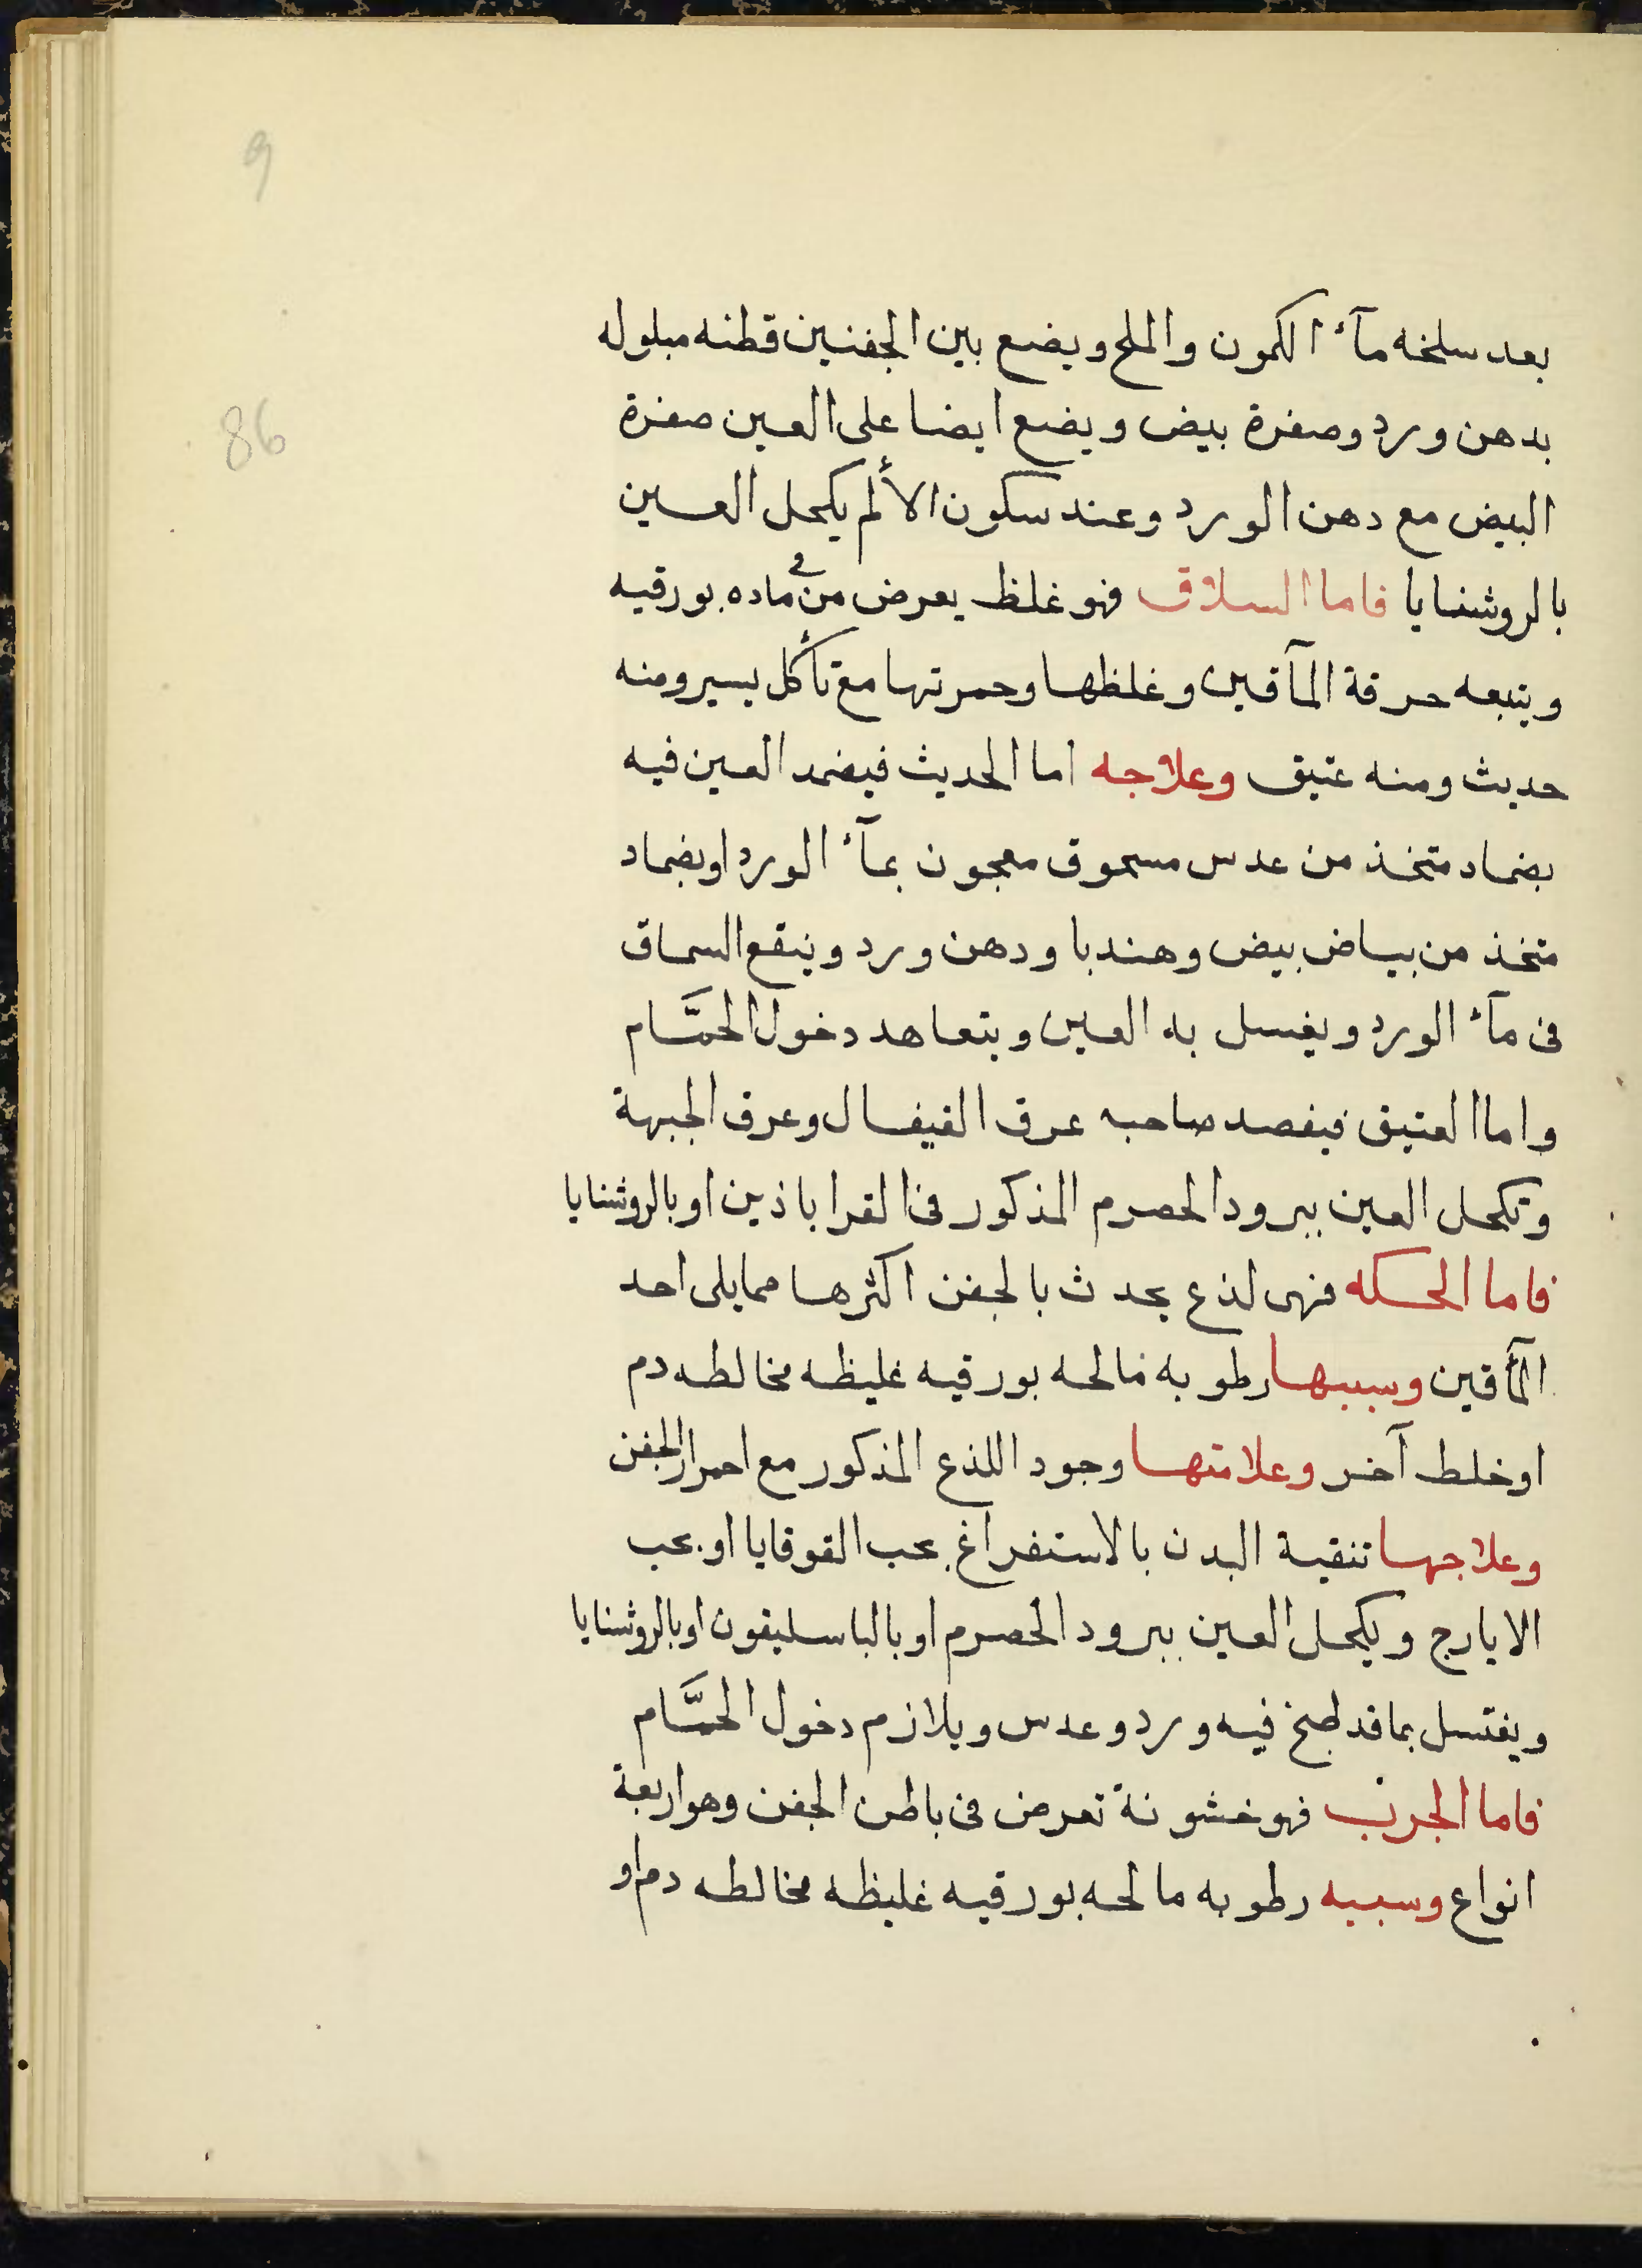 9
86
بعد سلخه مآء الكمون والملح ويضع بين الجفنين قطنه مبلوله
بدهن ورد وصفرة بيض ويضع ايضا على العين صفرة
البيض مع دهن الورد وعند سكون الألم يكحل العين
بالروشنايا فاما السلاق فهو غلظ يعرض من ماده بورقيه
ويتبعه حرقة المآقين وغلظها وحمرتها مع تأكل يسير ومنه
حديث ومنه عتيق وعلاجه اما الحديث فيضمد العين فيه
بضماد متخذ من عدس مسحوق معجون بمآء الورد او بضماد
متخذ من بياض بيض وهندبا ودهن ورد وينقع السماق
فى مآء الورد ويغسل به العين ويتعاهد دخول الحمَّام
واما العتيق فيفصد صاحبه عرق القيفال وعرق الجبهة
وتكحل العين ببرود الحصرم المذكور فى القراباذين او بالروشنايا
فاما الحكه فهى لذع يحدث بالجفن اكثرها مما يلى احد
المأقين وسببها رطوبه مالحه بورقيه غليظه مخالطه دم
او خلط آخر وعلامتها وجود اللذع المذكور مع احمرار الجفن
وعلاجها تنقية البدن بالاستفراغ بحب القوقايا او بحب
الايارج ويكحل العين ببرود الحصرم او بالباسليقون او بالروشنايا
ويغتسل بما قد طبخ فيه ورد وعدس ويلازم دخول الحمَّام
فاما الجرب فهو خشونة تعرض فى باطن الجفن وهو اربعة
انواع وسببه رطوبه مالحه بورقيه غليظه مخالطه دم او